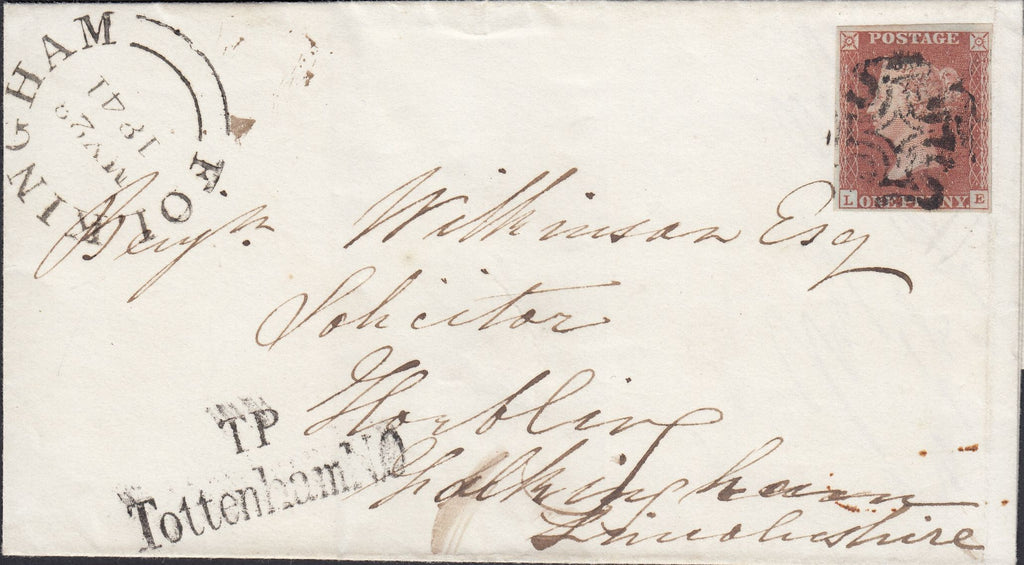 FOLKINGHAM
MY 29
1841
POSTAGE
L E
ONE PENNY
Benjn Wilkinson Esq
Solicitor
Horbling
Falkingham
Lincolnshire
TP
Tottenham N.O